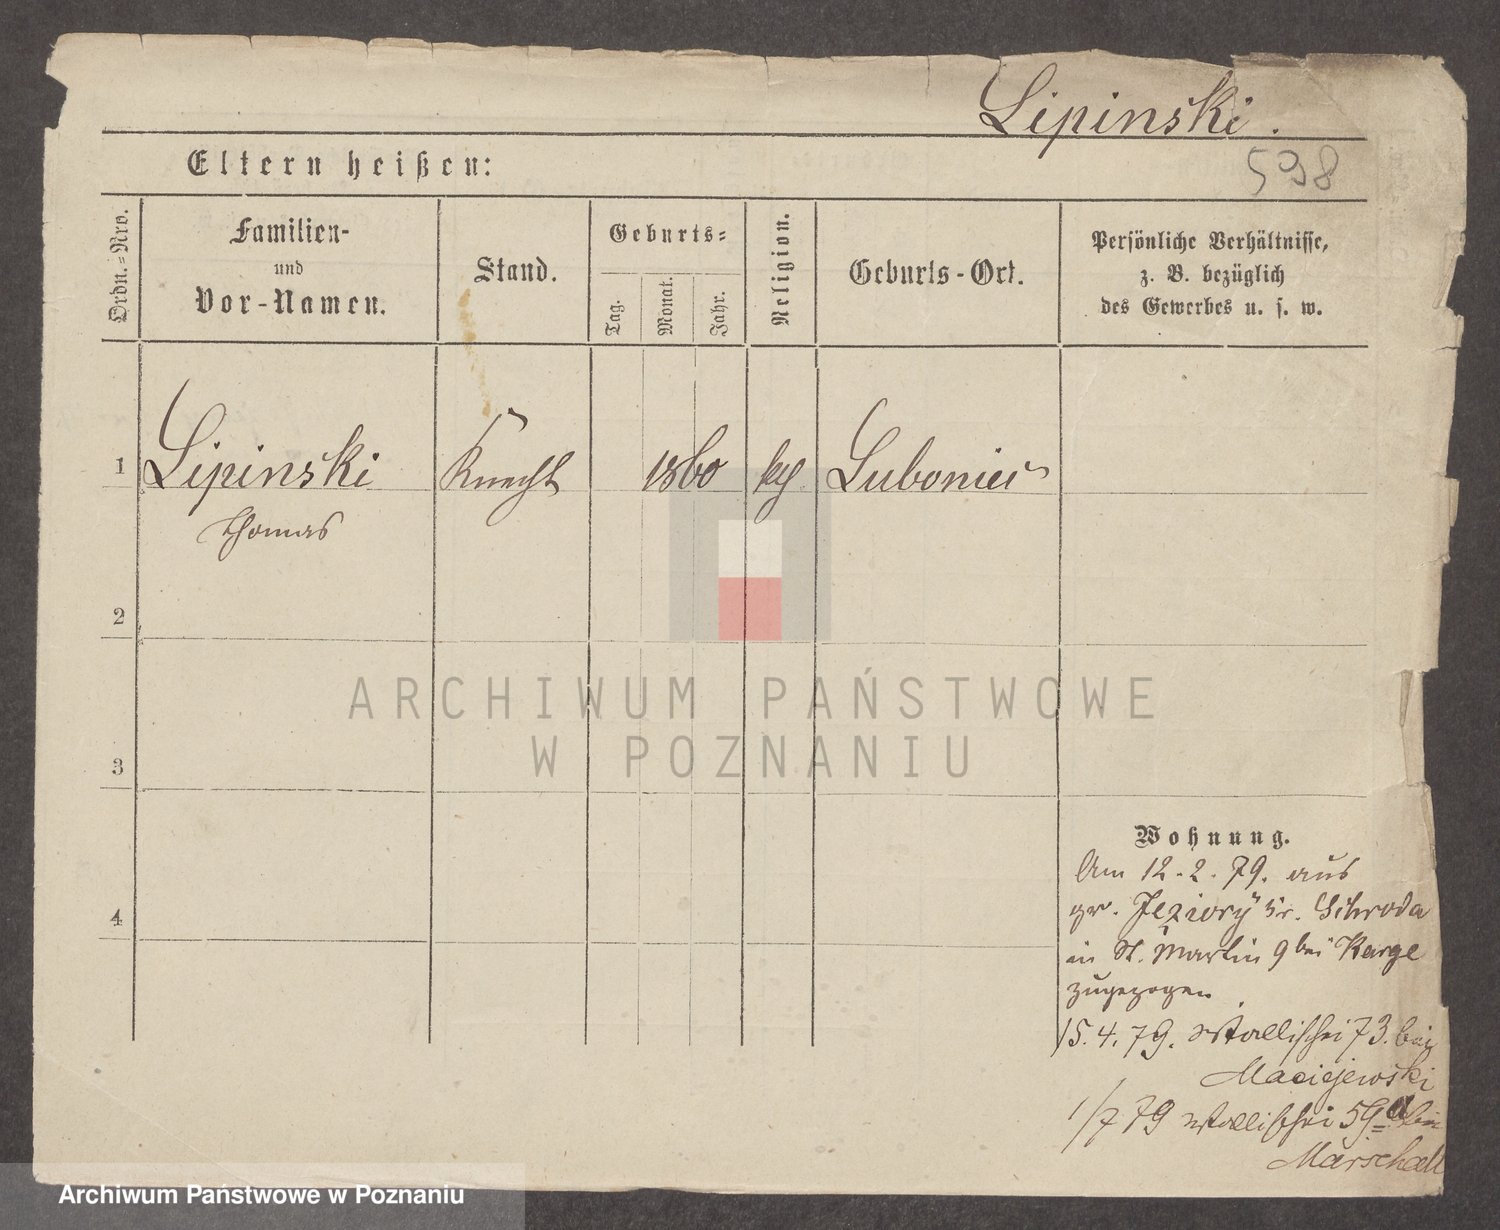 Lipinski.
598
Eltern heißen:
Ordn.=Nro.
Familien-
und
Vor-Namen.
Stand.
Geburts=
Tag.
Monat.
Jahr.
Religion.
Geburts-Ort.
Persönliche Verhältnisse,
z. B. bezüglich
des Gewerbes u. s. w.
1 Lipinski Knecht 1860 kth Lubonieč
Thomas
2
3
4
ARCHIWUM PAŃSTWOWE
W POZNANIU
Wohnung.
Am 12. 2. 79. aus
gr. Jeziory Kr. Schroda
in St. Martin 9 bei Karge
zugezogen
15. 4. 79. Wallischei 73. bei
Maciejewski
1/7 79 Wallischei 59a bei
Marschall
Archiwum Państwowe w Poznaniu